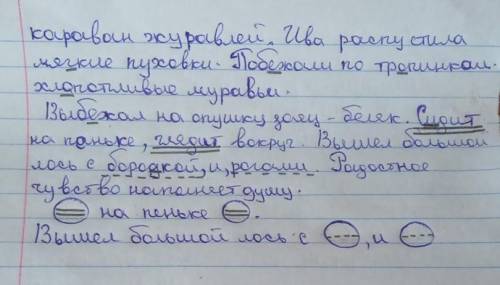 караван журавлей. Ива распустила
мягкие пуховки. Побежали по тропинкам
хлопотливые муравьи.
Выбежал на опушку заяц - беляк. Сидит
на пеньке, глядит вокруг. Вышел большой
лось с бородкой, и, рогами. Радостное
чувство наполняет душу.
на пеньке .
Вышел большой лось с , и